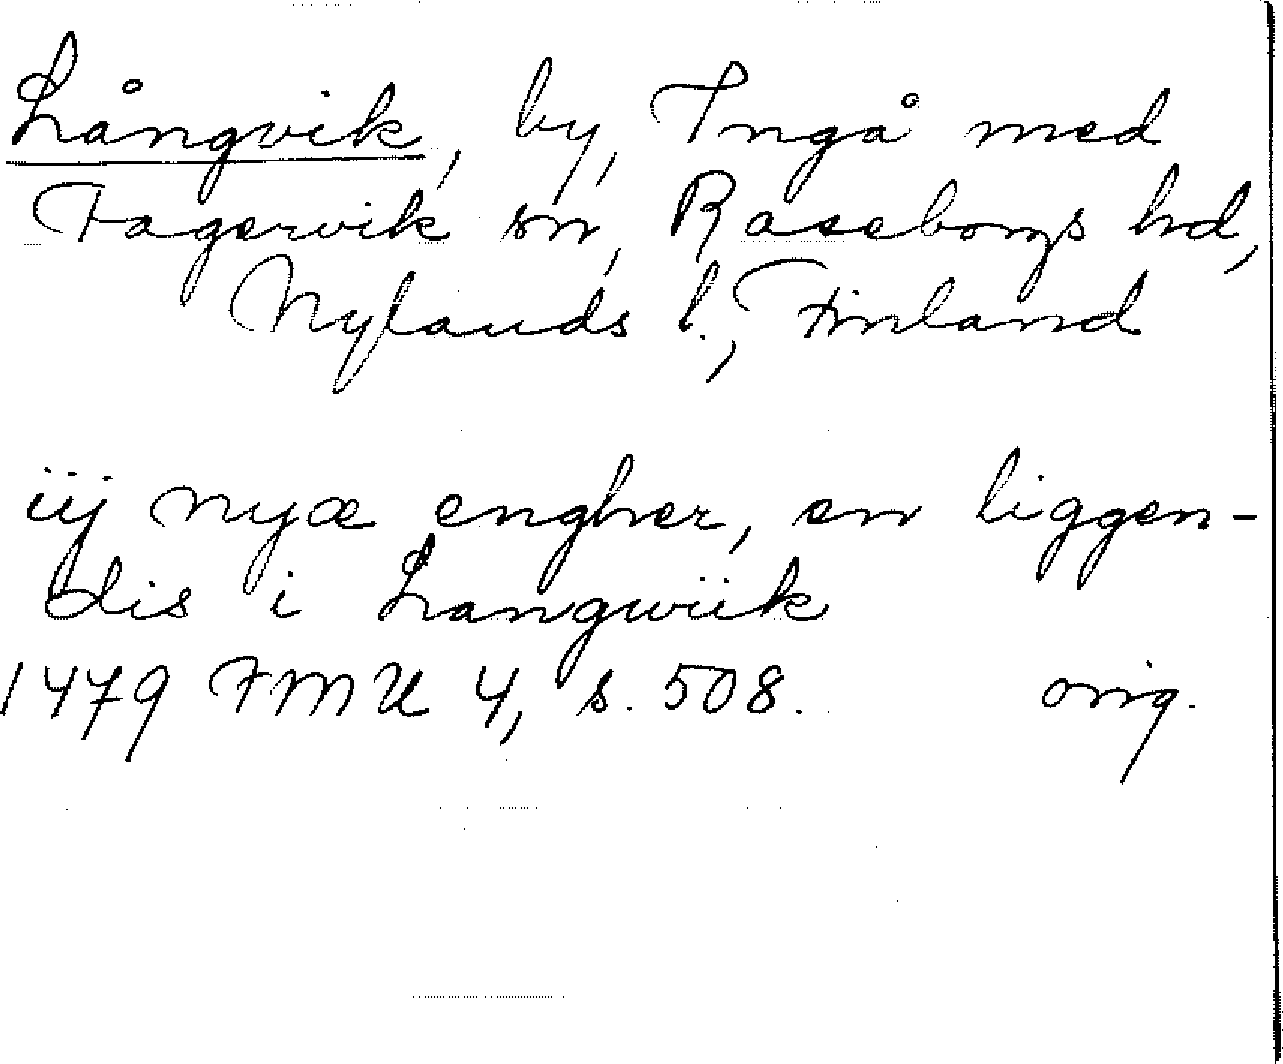 Långvik, by, Ingå med
Fagervik sn, Raseborgs hd,
Nylands l., Finland
iij nyæ engher, en liggen-
dis i Langwiik
1479 FMU 4, s. 508. orig.